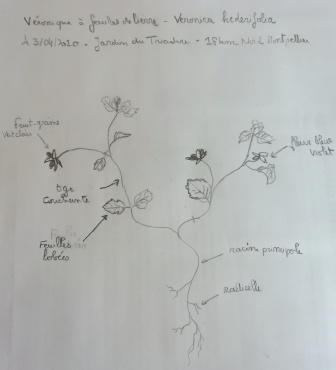 Véronique à feuilles de lierre - Veronica hederifolia
Le 3/04/2020 - Jardin du - 15km Nord Montpellier
Fruit-graine
vert clair
fleur bleu
violet
tige
couchante
Feuilles
lobées
racine principale
radicelle